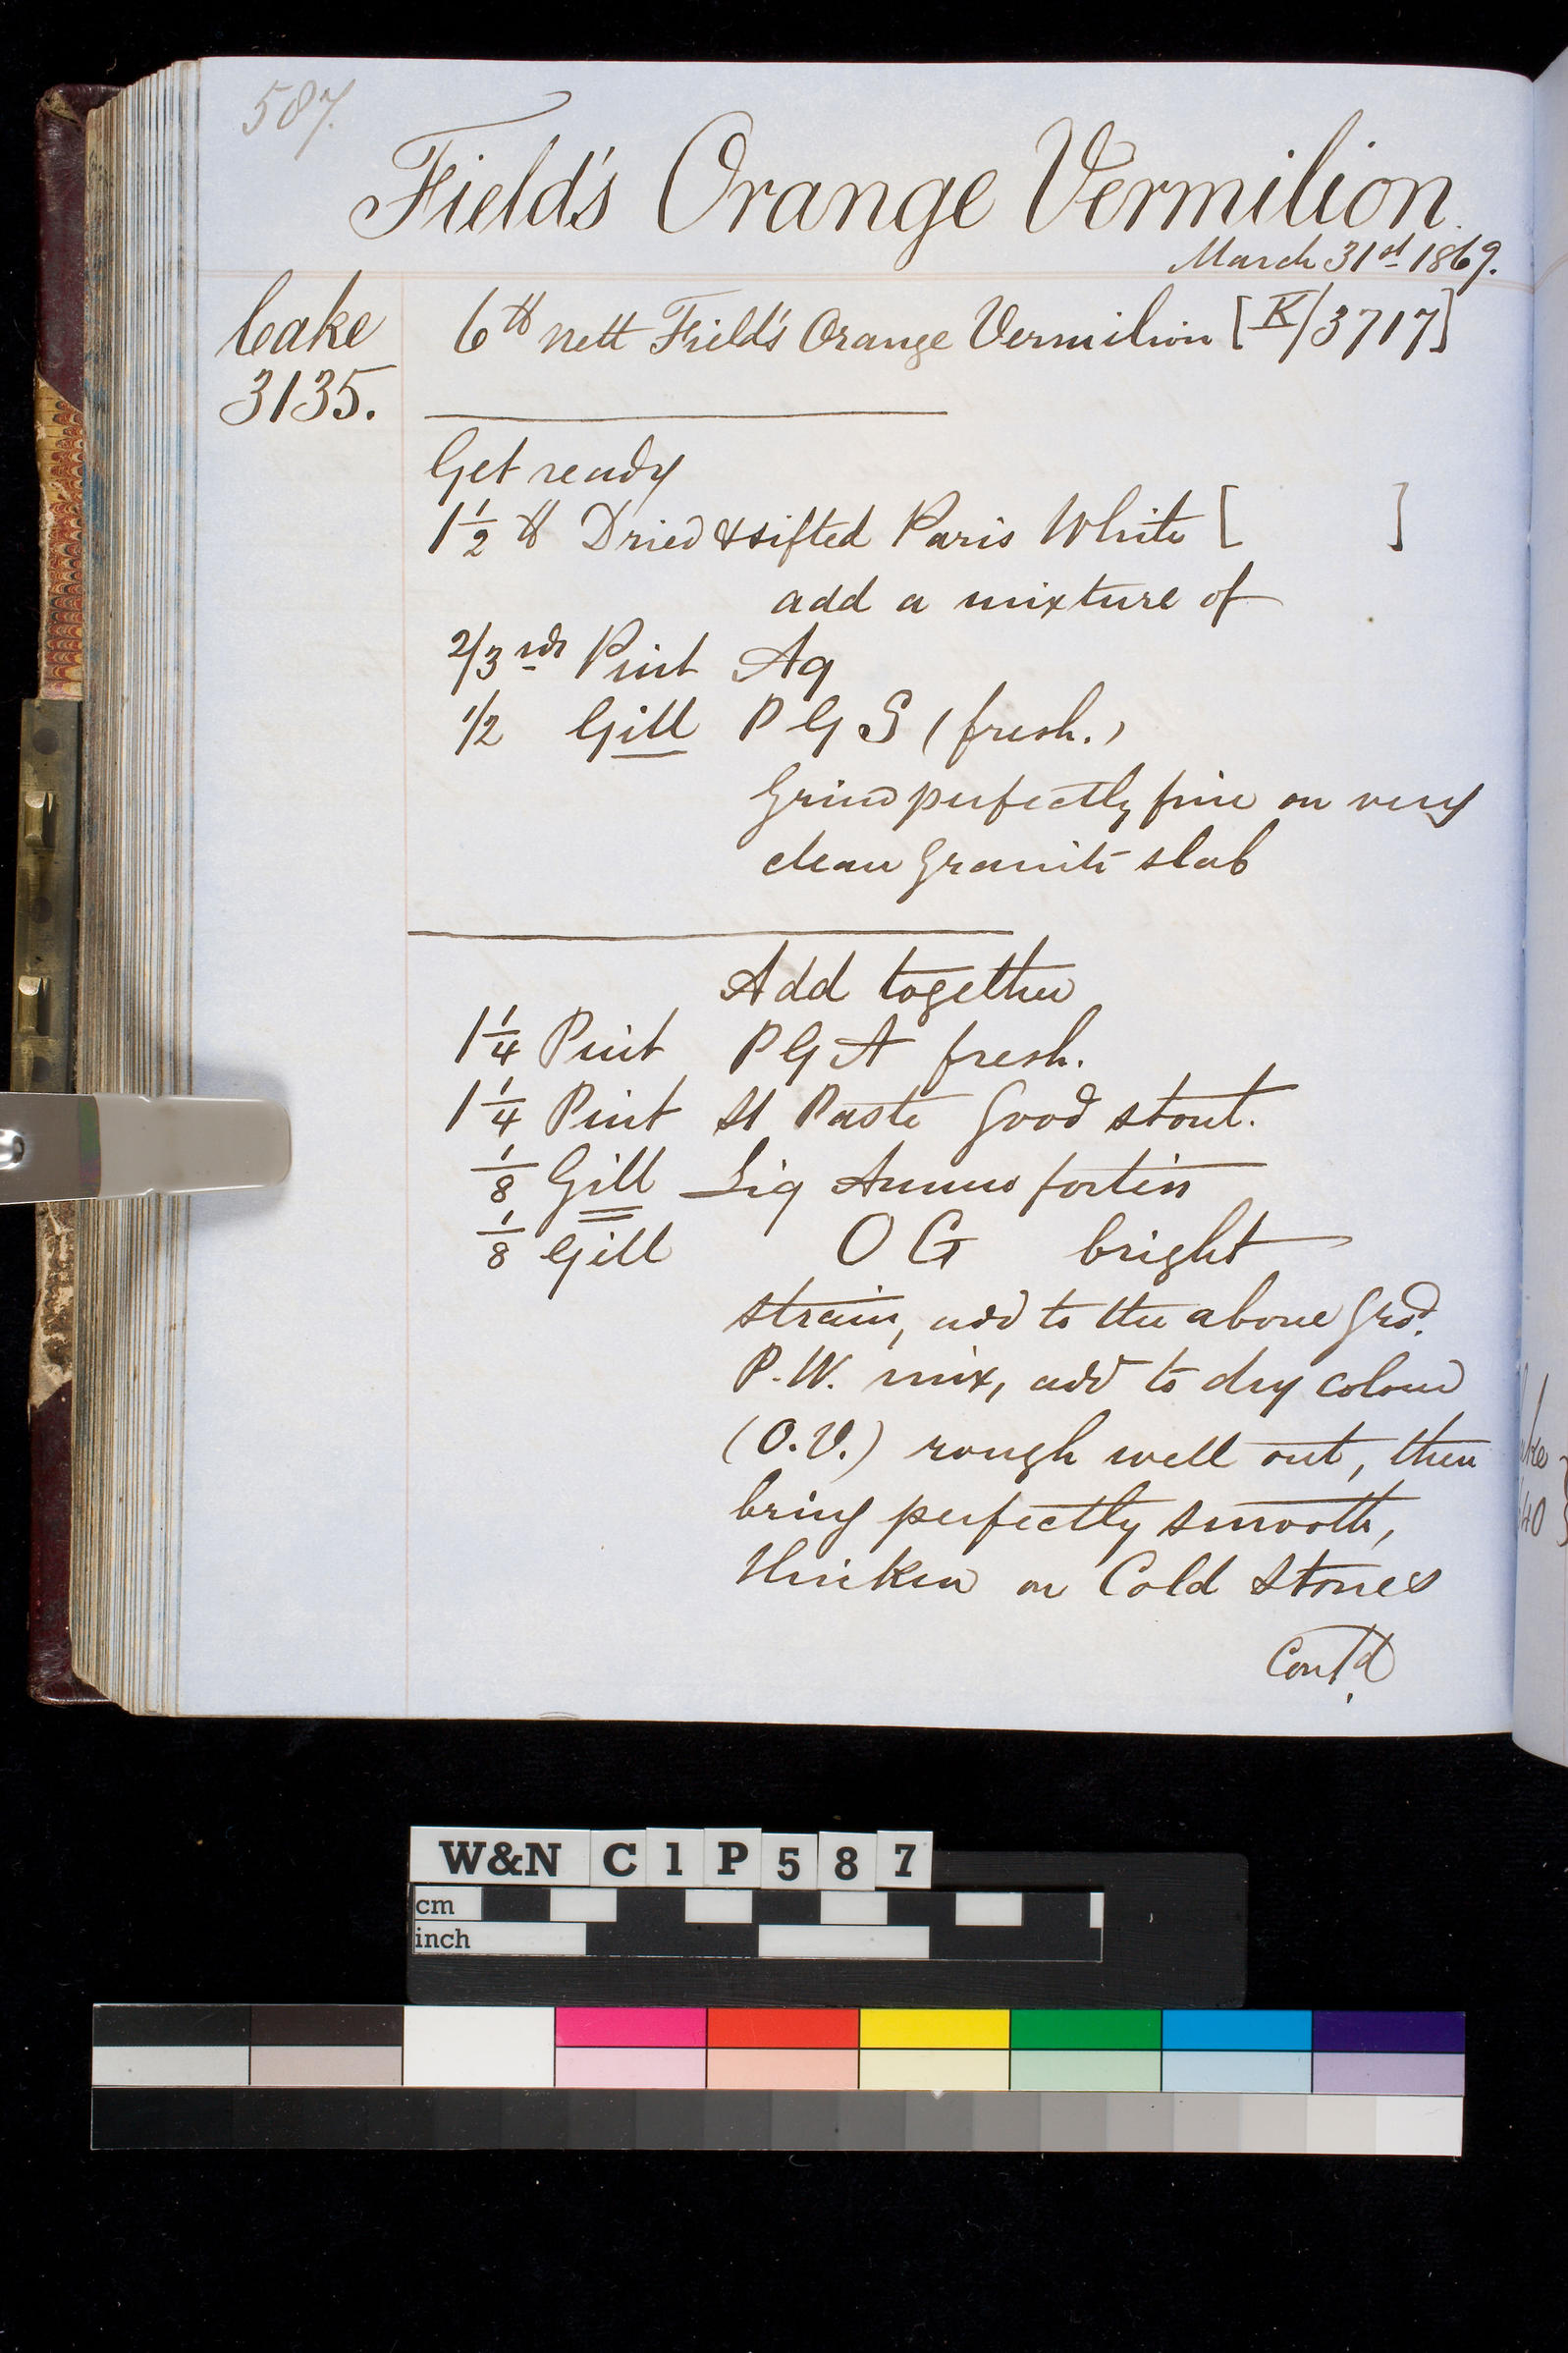 587.
Field's Orange Vermilion.
March 31st 1869.
Cake 6 lb nett Field's Orange Vermilion [K/3717]
3135.
Get ready
1 1/2 lb Dried & sifted Paris White [ ]
add a mixture of
2/3rds Pint Aq
1/2 Gill P G S (fresh.)
Grind perfectly fine on very
clean Granite slab
Add together
1 1/4 Pint P G A fresh.
1 1/4 Pint St Paste Good stout.
1/8 Gill Liq Ammo fortis
1/8 Gill O G bright
strain, add to the above Grd.
P.W. mix, add to dry colour
(O.V.) rough well out, then
bring perfectly smooth,
thicken on Cold Stones
Cont'd
W&N C1P587
cm
inch